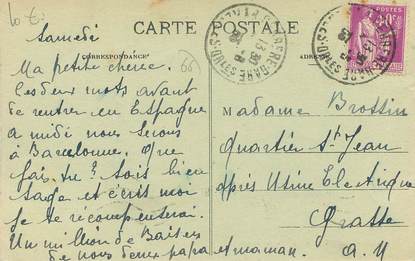 10 €
Samedi
CARTE POSTALE
CORRESPONDANCE
ADRESSE
Ma petite cherie.
Ces deux mots avant
de rentrer en Espagne
a midi nous serons
à Barcelonne. Que
fais-tu? Sois bien
sage et écris moi
je te recompenserai.
Un million de Baisers
de nous deux papa et maman.
Madame Brossin
Quartier St Jean
après Usine Electrique
Grasse
A. M